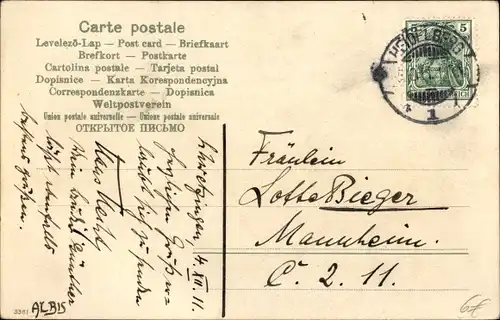 Carte postale
Levelező-Lap — Post card — Briefkaart
Brefkort — Postkarte
Cartolina postale — Tarjeta postal
Dopisnice — Karta Korespondencyjna
Correspondenzkarte — Dopisnica
Weltpostverein
Union postale universelle — Unione postale universale
ОТКРЫТОЕ ПИСЬМО
5
HEIDELBERG
* 1
Schwetzingen, 14. XII. 11.
Herzlichen Gruß
zu senden
Hans
Mein Bruder Günther
läßt ebenfalls
bestens grüßen.
Fräulein
Lotte Bieger
Mannheim.
C. 2. 11.
3361
ALBIS
6€